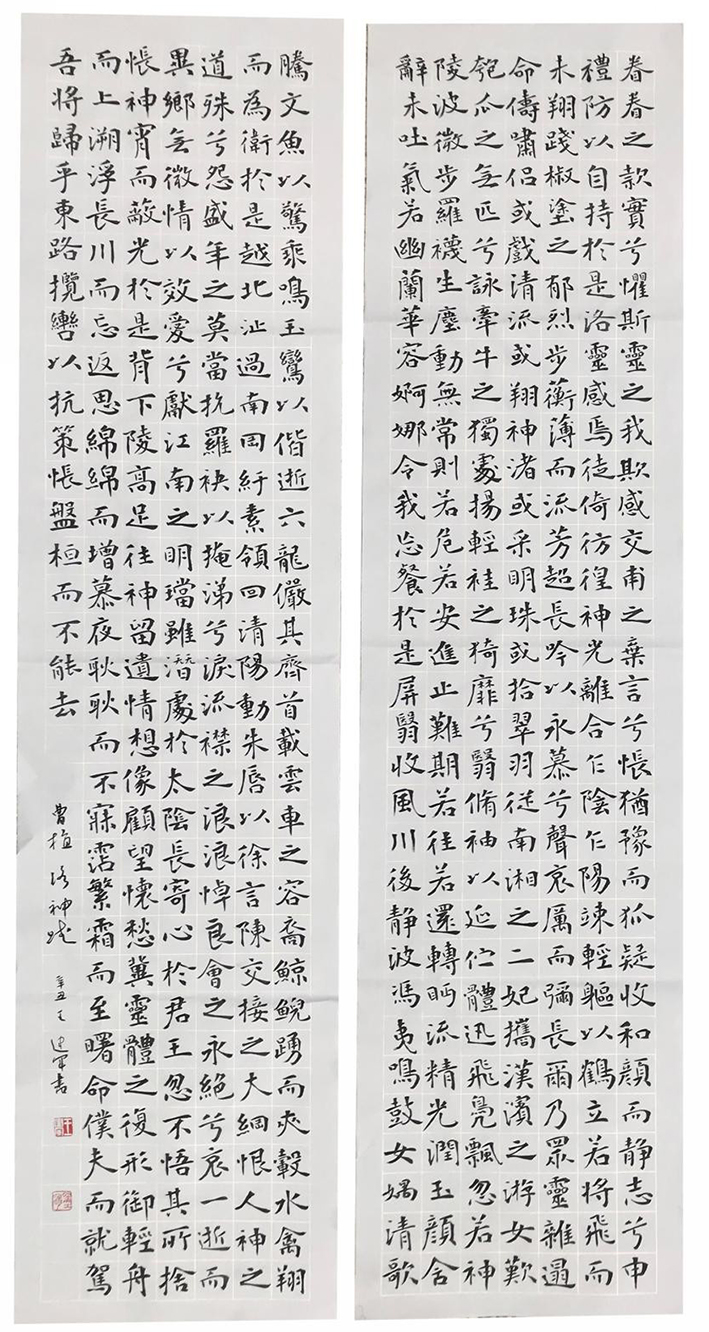 眷眷之款實兮懼斯靈之我欺感交甫之棄言兮悵猶豫而狐疑收和顏而静志兮申
禮防以自持於是洛靈感焉徙倚彷徨神光離合乍陰乍陽竦輕軀以鶴立若將飛而
未翔踐椒塗之郁烈步蘅薄而流芳超長吟以永慕兮聲哀厲而彌長爾乃眾靈雜遝
命儔嘯侶或戲清流或翔神渚或采明珠或拾翠羽從南湘之二妃攜漢濱之游女歎
匏瓜之無匹兮詠牽牛之獨處揚輕袿之猗靡兮翳脩袖以延佇體迅飛鳧飄忽若神
陵波微步羅襪生塵動無常則若危若安進止難期若往若還轉眄流精光潤玉顏含
辭未吐氣若幽蘭華容婀娜令我忘餐於是屏翳收風川後静波馮夷鳴鼓女媧清歌
騰文魚以驚乘鳴玉鸞以偕逝六龍儼其齊首載雲車之容裔鯨鯢踴而夾轂水禽翔
而為衛於是越北沚過南岡紆素領回清陽動朱唇以徐言陳交接之大綱恨人神之
道殊兮怨盛年之莫當抗羅袂以掩涕兮淚流襟之浪浪悼良會之永絕兮哀一逝而
異鄉無微情以效愛兮獻江南之明璫雖潛處於太陰長寄心於君王忽不悟其所捨
悵神宵而蔽光於是背下陵高足往神留遺情想像顧望懷愁冀靈體之復形御輕舟
而上溯浮長川而忘返思綿綿而增慕夜耿耿而不寐霑繁霜而至曙命僕夫而就駕
吾將歸乎東路攬轡以抗策悵盤桓而不能去
曹植 洛神賦 辛丑 王建軍書